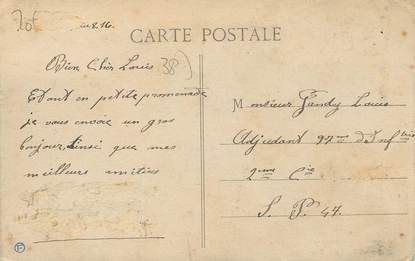 CARTE POSTALE
38
Bien Cher Louis
Etant en petite promenade
je vous envoie un gros
bonjour ainsi que mes
meilleurs amitiés
Monsieur Gandy Louis
Adjudant 97me d'Infrie
2me Cie
S. P. 47.